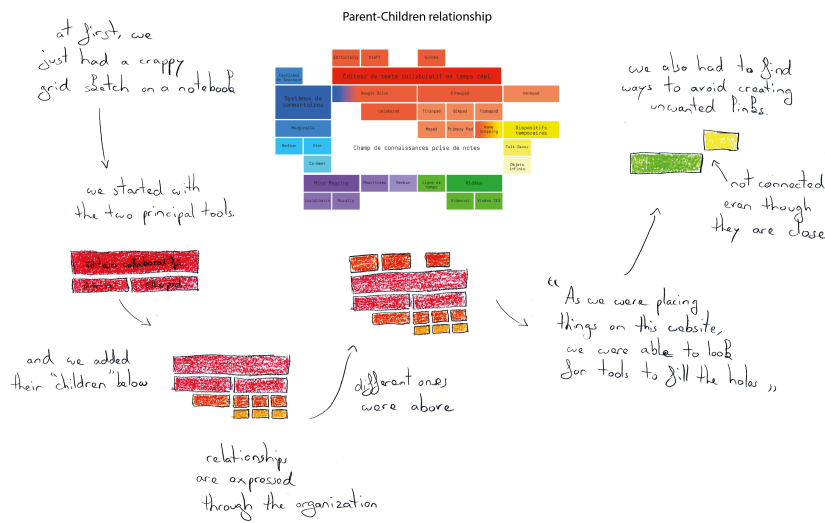 Parent-Children relationship
at first, we
just had a crappy
grid sketch on a notebook
we started with
the two principal tools.
and we added
their "children" below
relationships
are expressed
through the organization
different ones
were above
" As we were placing
things on this website,
we were able to look
for tools to fill the holes "
we also had to find
ways to avoid creating
unwanted links.
not connected
even though
they are close
Editeur de texte collaboratif en temps réel
Systèmes de
commentaires
Google Drive
Etherpad
Hackpad
Titanpad
Primary Pad
Dispositifs
temporaires
Marginalia
Medium
Co-ment
Champ de connaissances prise de notes
Objets
infinis
Mind Mapping
Ligne de
temps
Vidéos
Mindomo
Videos TED